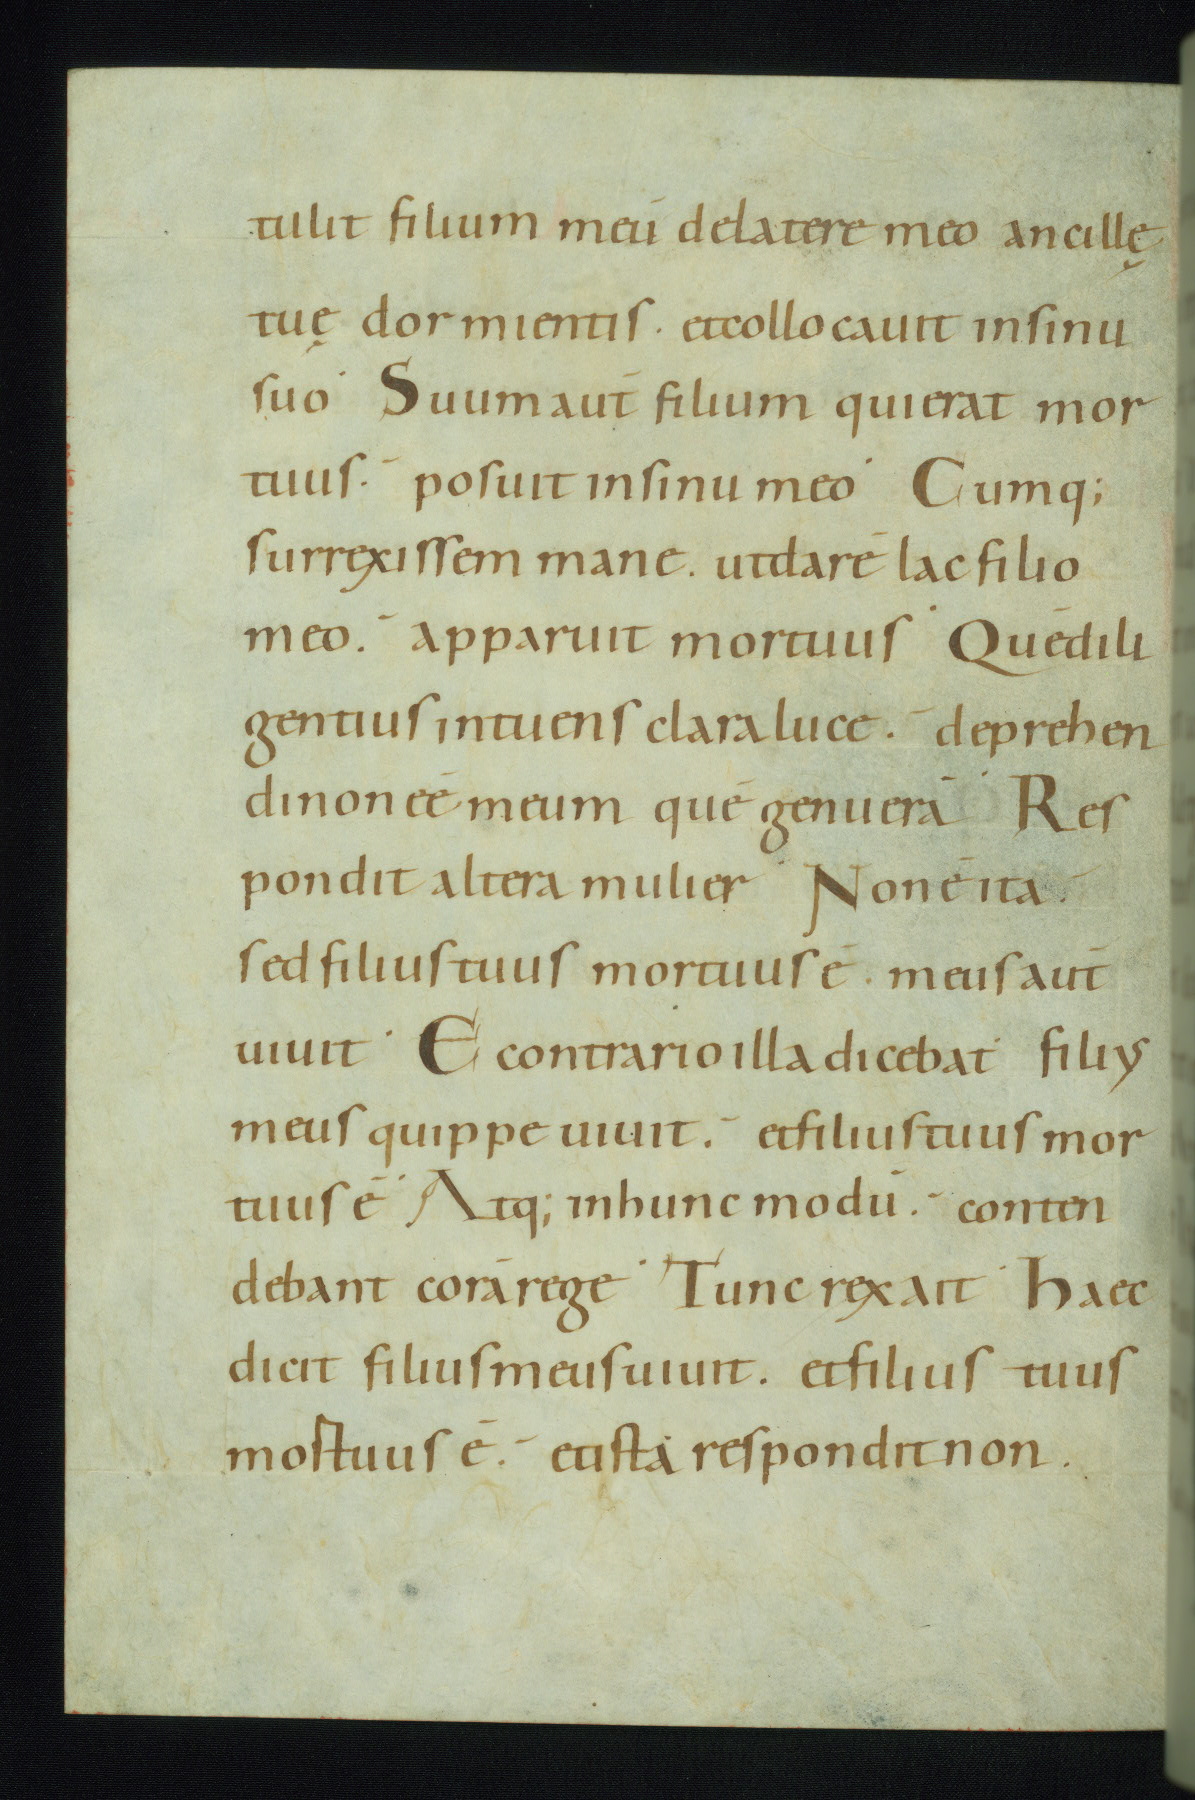 tulit filium meū delatere meo ancillę
tuę dormientis. etcollocauit insinu
suo· Suum aut̄ filium quierat mor
tuus. posuit insinu meo· Cumq;
surrexissem mane. utdarē lac filio
meo. apparuit mortuus· Quēdili
gentius intuens clara luce. deprehen
dinon eē meum quē genuerā· Res
pondit altera mulier· Non ē ita.
sed filius tuus mortuus ē. meus aut̄
uiuit· E contrario illa dicebat· filius
meus quippe uiuit. etfilius tuus mor
tuus ē· Atq; inhunc modū. conten
debant corā rege· Tunc rex ait· Haec
dicit filius meus uiuit. etfilius tuus
mortuus ē. etista respondit non.